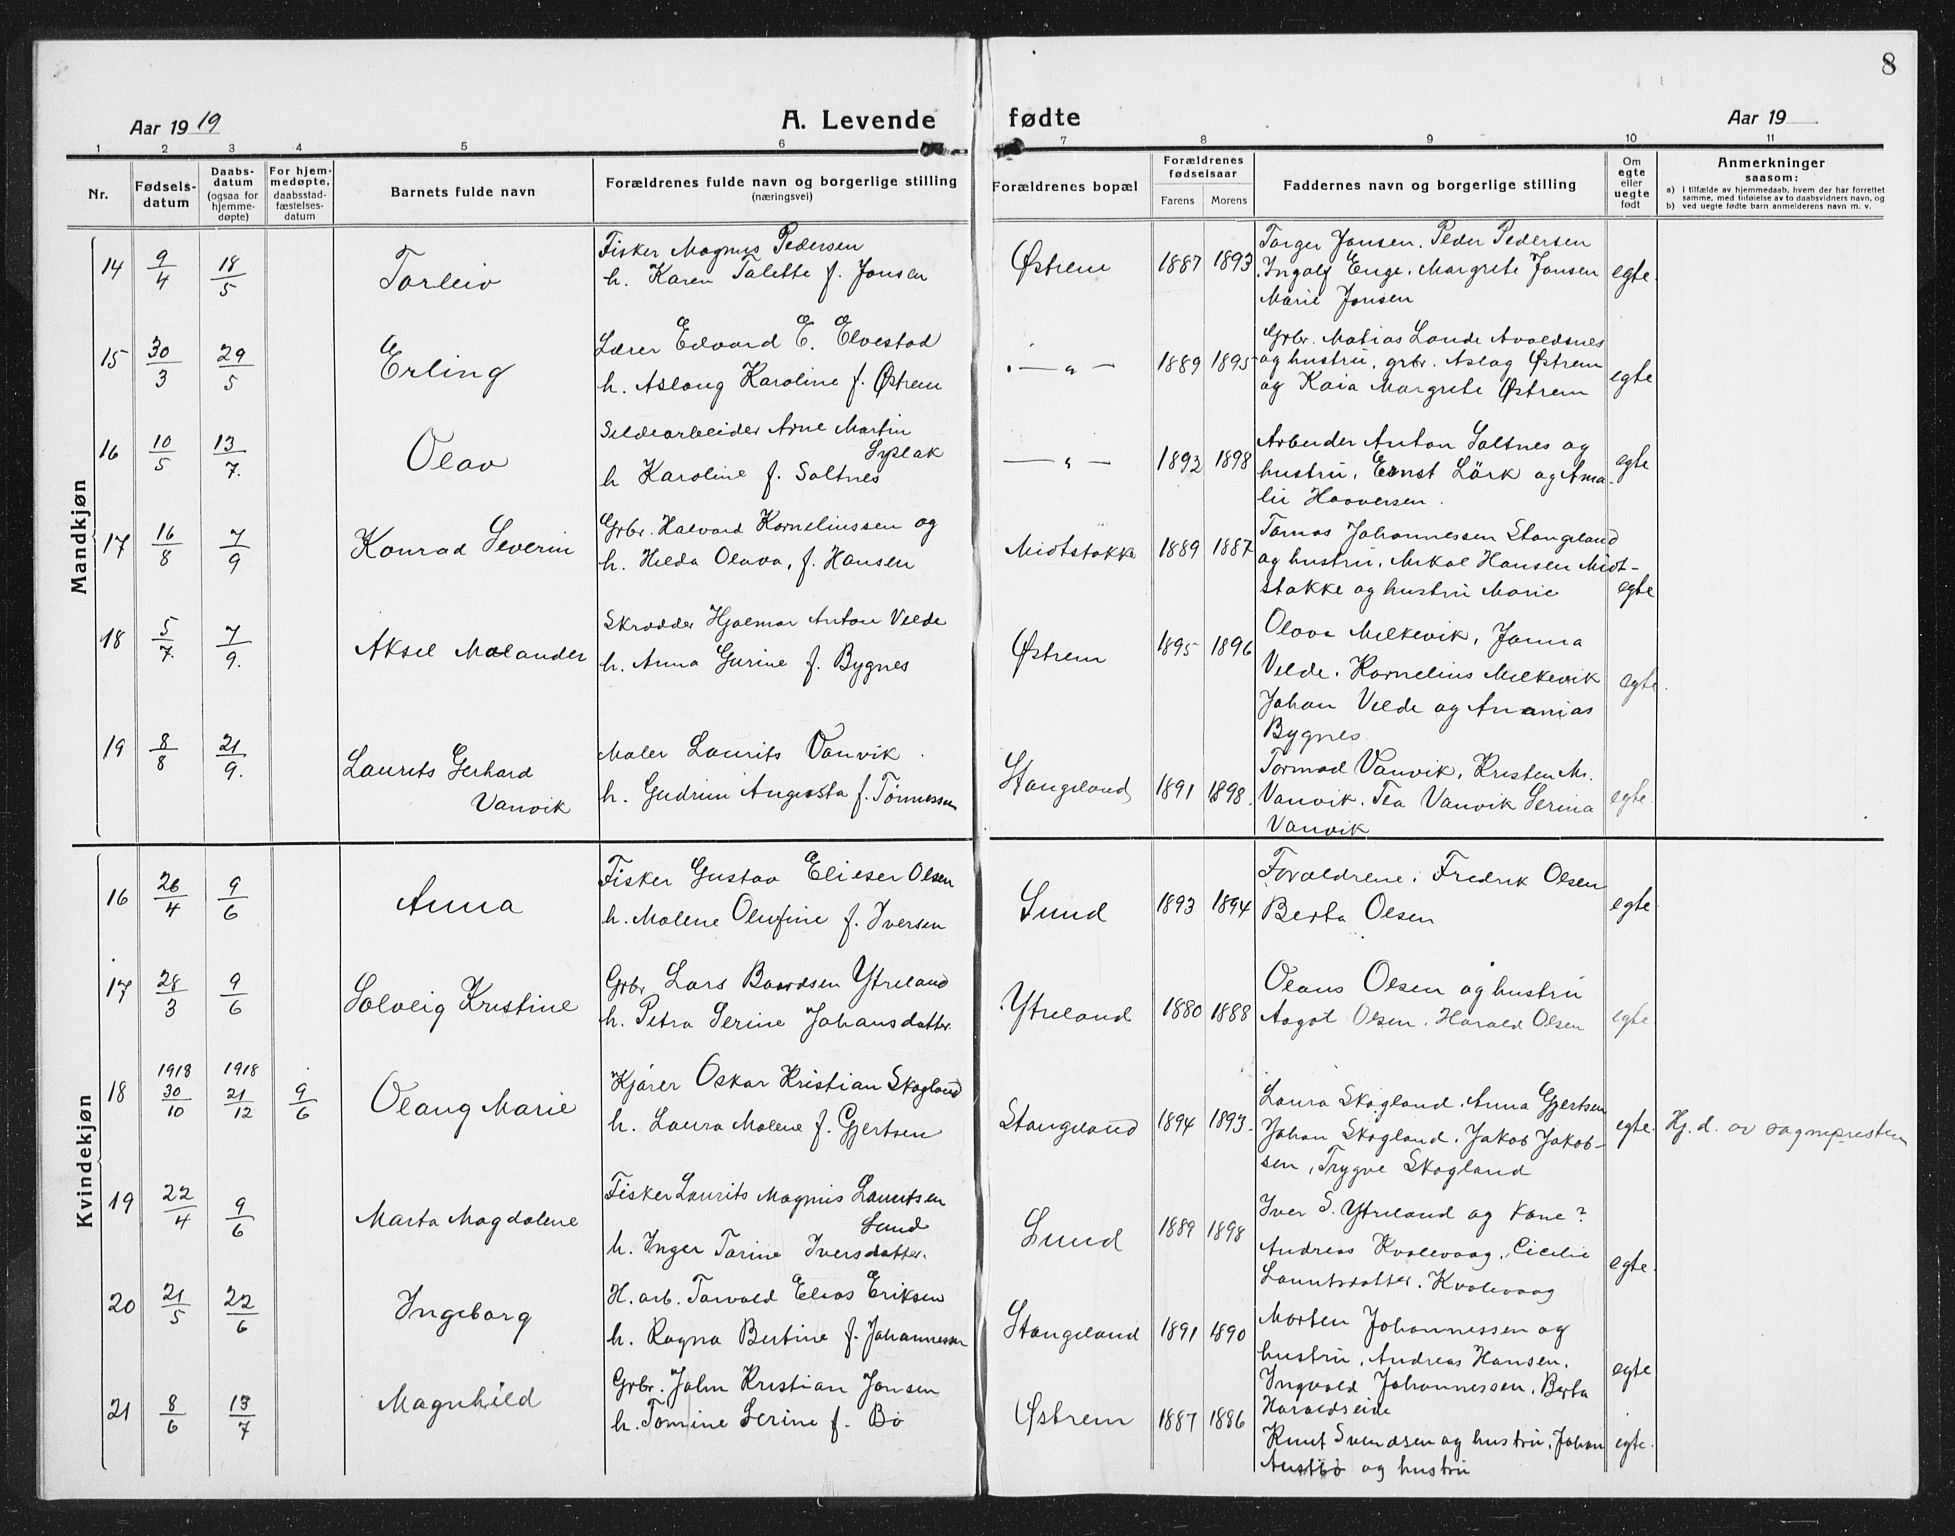 8
Aar 1919 A. Levende fødte Aar 19
1 2 3 4 5 6 7 8 9 10 11
Nr. Fødsels-datum Daabs-datum (ogsaa for hjemme-døpte) For hjem-medøpte, daabsstad-fæstelses-datum Barnets fulde navn Forældrenes fulde navn og borgerlige stilling (næringsvei) Forældrenes bopæl Forældrenes fødselsaar Farens Morens Faddernes navn og borgerlige stilling Om egte eller uegte født Anmerkninger saasom:
a) I tilfælde av hjemmedaab, hvem der har forrettet samme, med tilføielse av to daabsvidners navn, og
b) ved uegte fødte barn anmelderens navn m. v.
Mandkjøn
14 9/4 18/5 Torleiv Fisker Magnus Pedersen
h. Karen Talette f. Jonsen
Østrem 1887 1893 Torger Jonsen. Peder Pedersen
Ingolf Enge. Margrete Jonsen
Marie Jonsen
egte.
15 30/3 29/5 Erling Lærer Edvard E. Elvestad
h. Aslaug Karoline f. Østrem
— " — 1889 1895 Grbr. Matias Lande Avaldsnes
og hustru, grbr. Aslag Østrem
og Kaia Margrete Østrem
egte
16 10/5 13/7. Olav Sildearbeider Arne Martin
Syslak
h Karoline f. Saltnes
— " — 1892 1898 Arbeider Anton Saltnes og
hustru. Ernst Lörk og Ama-
lie Haaversen.
egte
17 16/8 7/9 Konrad Severin Grbr. Halvard Korneliussen og
h. Hilda Olava, f. Hansen
Midtstokke 1889 1887 Tomas Johannessen Stangeland
og hustru. Mikal Hansen Midt-
stokke og hustru Marie
egte
18 5/7. 7/9. Aksel Malander Skrædder Hjalmar Anton Velde
h. Anna Gurine f. Bygnes
Østrem 1895 1896 Olava Milkevik, Janna
Velde. Kornelius Melkevik
Johan Velde og Ananias
Bygnes
egte.
19 8/8 21/9. Laurits Gerhard
Vanvik
Maler Laurits Vanvik.
h. Gudrun Augusta f. Tönnessen
Stangeland 1891 1898. Tormod Vanvik, Kristen M.
Vanvik. Tea Vanvik Serina
Vanvik
egte.
Kvindekjøn
16 26/4 9/6 Anna Fisker Gustav Elieser Olsen
h. Malene Olufine f. Iversen
Sund 1893 1894 Forældrene. Fredrik Olsen
Berta Olsen
egte.
17 28/3 9/6 Solveig Kristine Grbr. Lars Baardsen Ytreland
h. Petra Serine Johansdatter.
Ytreland 1880 1888 Olaus Olsen og hustru
Aagot Olsen. Harald Olsen
egte.
18 1918 30/10 1918 21/12 9/6 Olaug Marie Kjører Oskar Kristian Skogland
h. Laura Malene f. Gjertsen
Stangeland 1894 1893. Laura Skogland. Anna Gjertsen
Johan Skogland. Jakob Jakob-
sen, Trygve Skogland
egte. Hj. d. av sognepresten
19 22/4 9/6 Marta Magdalene Fisker Laurits Magnus Lauritsen
Sund
h. Inger Tarine Iversdatter.
Sund 1889 1898 Iver S. Ytreland og Kone?
Andreas Kvalevaag, Cicilie
Lauritsdatter. Kvalevaag
egte.
20 21/5 22/6 Ingeborg H. arb. Torvald Elias Eriksen
h. Ragna Bertine f. Johannessen
Stangeland 1891 1890 Morten Johannessen og
hustru, Andreas Hansen.
Ingvald Johannessen. Berta
Haraldseide
egte
21 8/6 13/7 Magnhild Grbr. John Kristian Jonsen
h. Tomine Serine f. Bø
Østrem 1887 1886 Knut Svendsen og hustru. Johan
Austbø og hustru
egte.